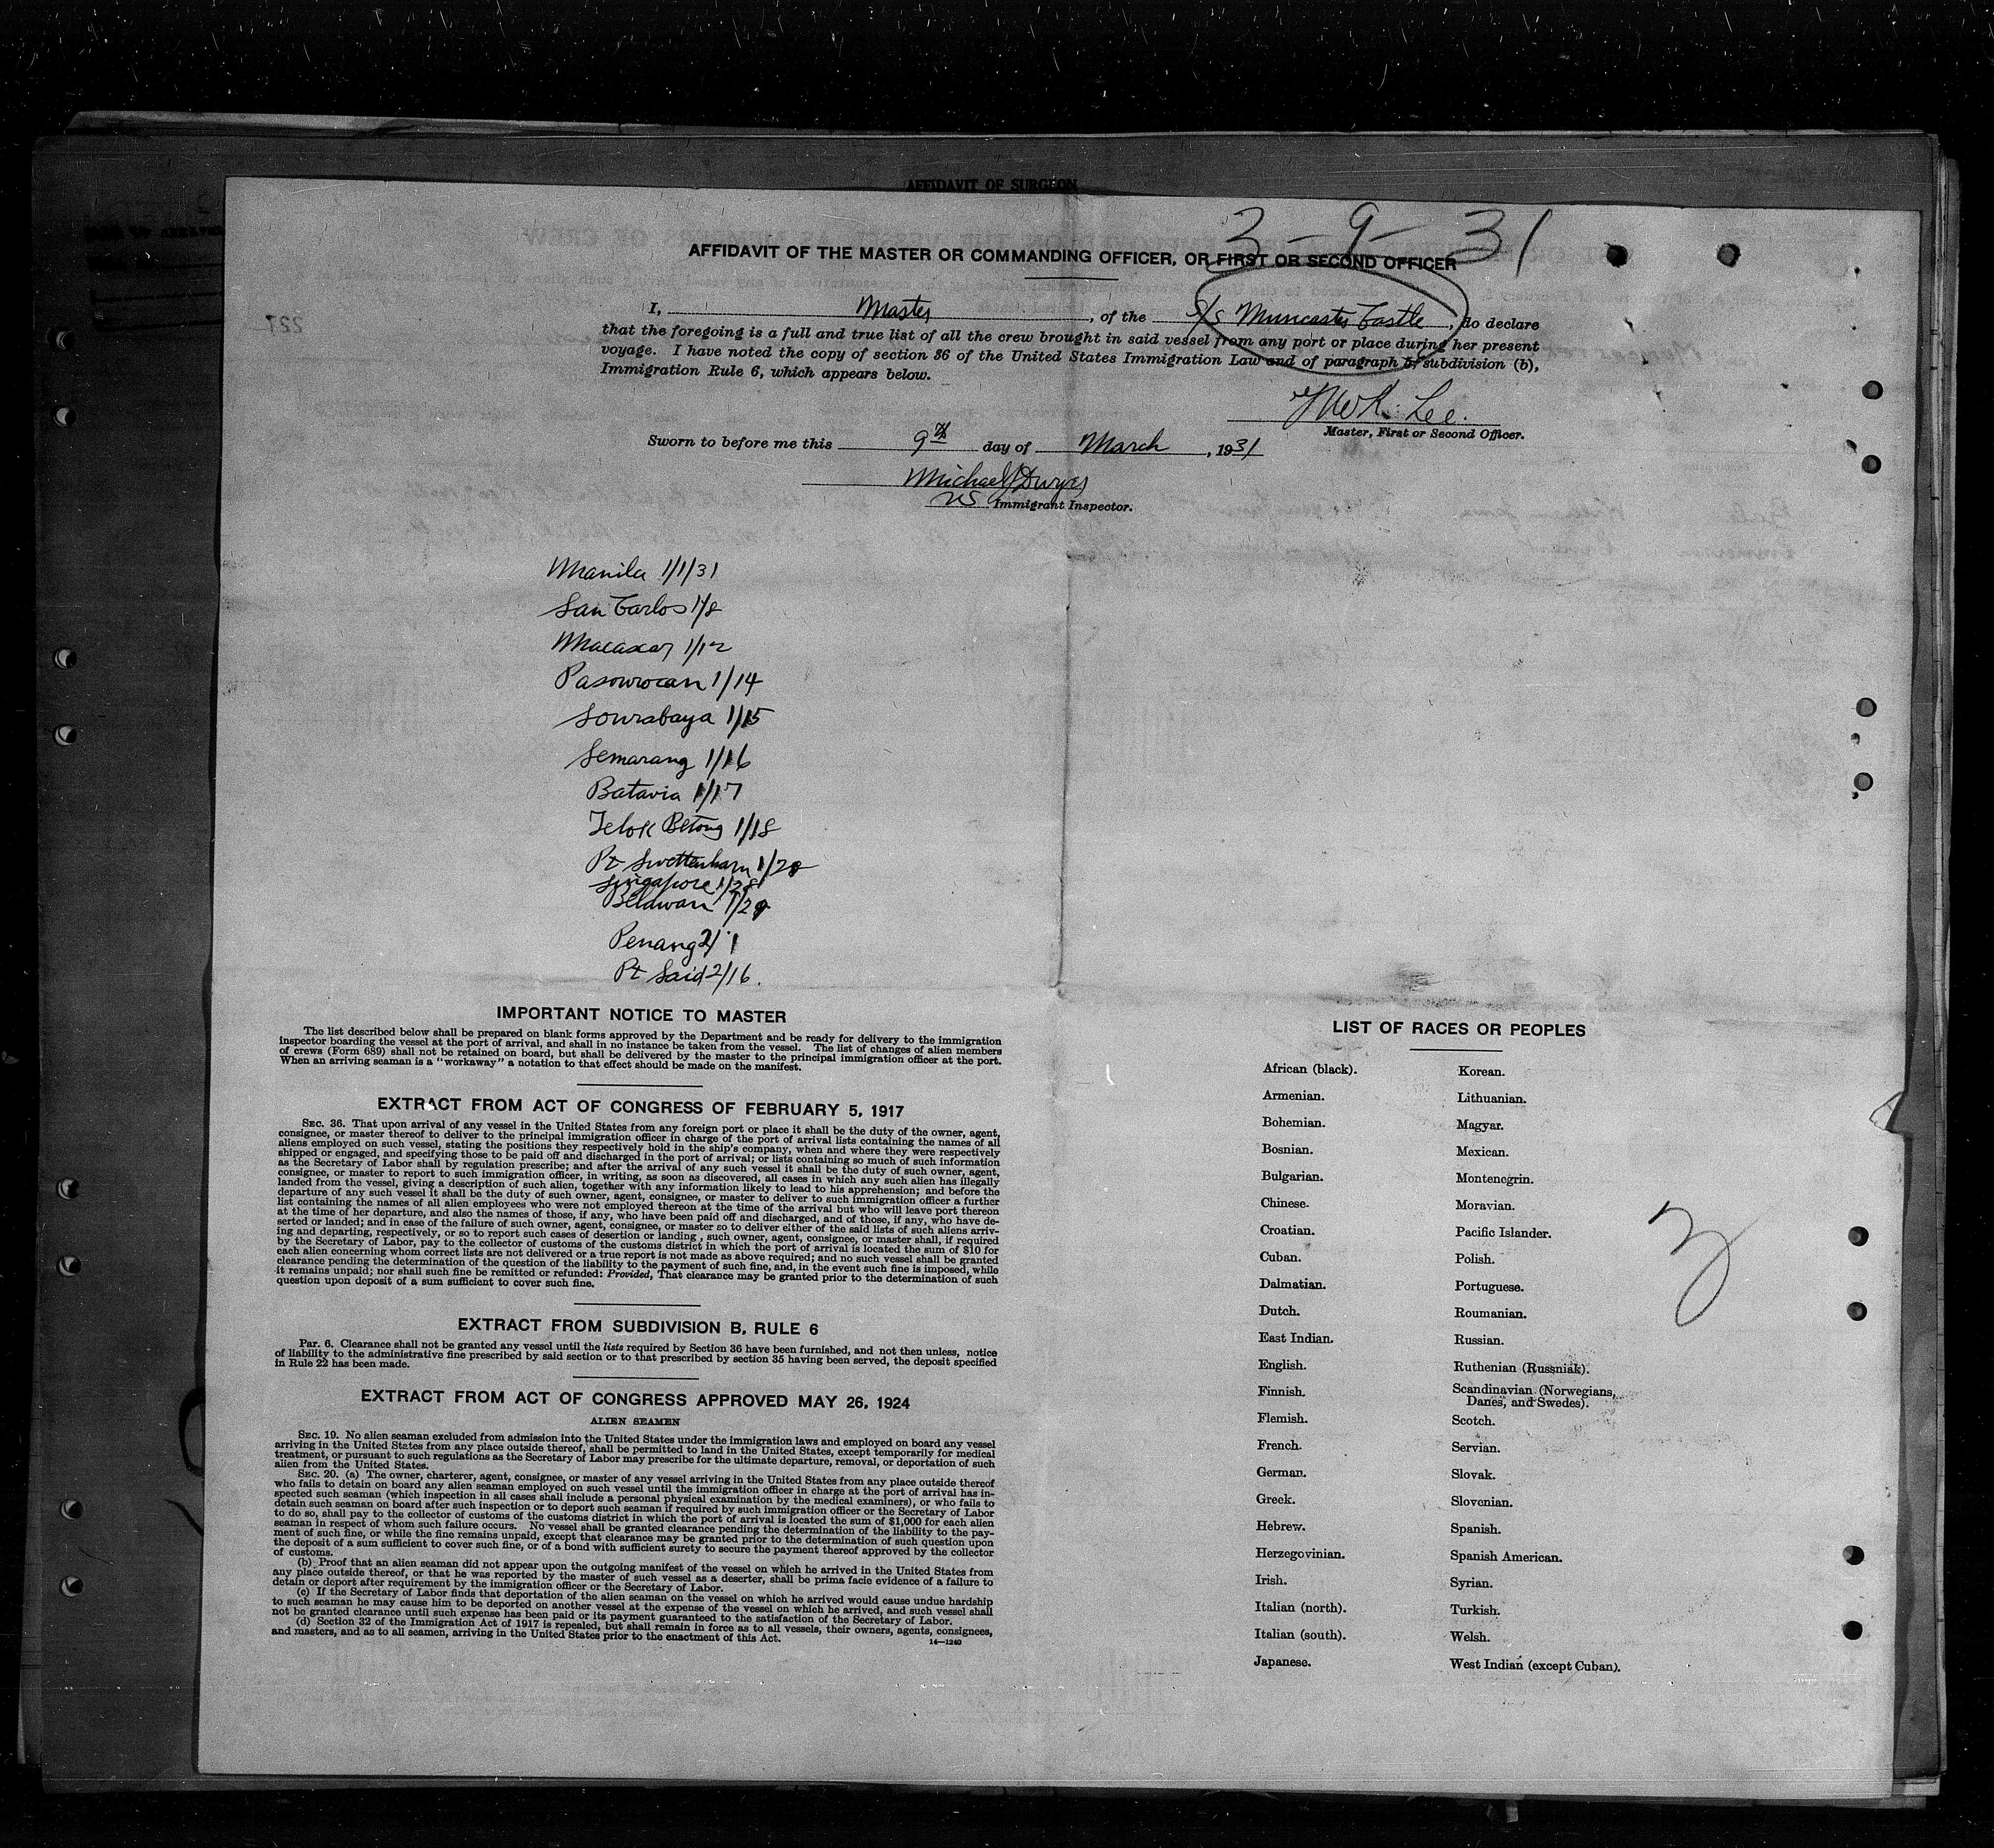 AFFIDAVIT OF SURGEON
3-9-31
AFFIDAVIT OF THE MASTER OR COMMANDING OFFICER, OR FIRST OR SECOND OFFICER
I, Master, of the S/S Muncaster Castle, do declare
that the foregoing is a full and true list of all the crew brought in said vessel from any port or place during her present
voyage. I have noted the copy of section 36 of the United States Immigration Law and of paragraph 5, subdivision (b),
Immigration Rule 6, which appears below.
Lee.
Master, First or Second Officer.
Sworn to before me this 9th day of March, 1931
Michael J Dwyer
US Immigrant Inspector.
227
Manila 1/1/31
San Carlos 1/8
Macassar 1/12
Pasouroean 1/14
Sourabaya 1/15
Semarang 1/16
Batavia 1/17
Telok Betong 1/18
Pt Swettenham 1/28
Singapore 1/28
Belawan 1/29
Penang 2/1
Pt Said 2/16.
IMPORTANT NOTICE TO MASTER
The list described below shall be prepared on blank forms approved by the Department and be ready for delivery to the immigration
inspector boarding the vessel at the port of arrival, and shall in no instance be taken from the vessel. The list of changes of alien members
of crews (Form 689) shall not be retained on board, but shall be delivered by the master to the principal immigration officer at the port.
When an arriving seaman is a "workaway" a notation to that effect should be made on the manifest.
EXTRACT FROM ACT OF CONGRESS OF FEBRUARY 5, 1917
SEC. 36. That upon arrival of any vessel in the United States from any foreign port or place it shall be the duty of the owner, agent,
consignee, or master thereof to deliver to the principal immigration officer in charge of the port of arrival lists containing the names of all
aliens employed on such vessel, stating the positions they respectively hold in the ship's company, when and where they were respectively
shipped or engaged, and specifying those to be paid off and discharged in the port of arrival; or lists containing so much of such information
as the Secretary of Labor shall by regulation prescribe; and after the arrival of any such vessel it shall be the duty of such owner, agent,
consignee, or master to report to such immigration officer, in writing, as soon as discovered, all cases in which any such alien has illegally
landed from the vessel, giving a description of such alien, together with any information likely to lead to his apprehension; and before the
departure of any such vessel it shall be the duty of such owner, agent, consignee, or master to deliver to such immigration officer a further
list containing the names of all alien employees who were not employed thereon at the time of the arrival but who will leave port thereon
at the time of her departure, and also the names of those, if any, who have been paid off and discharged, and of those, if any, who have de-
serted or landed; and in case of the failure of such owner, agent, consignee, or master so to deliver either of the said lists of such aliens arriv-
ing and departing, respectively, or so to report such cases of desertion or landing, such owner, agent, consignee, or master shall, if required
by the Secretary of Labor, pay to the collector of customs of the customs district in which the port of arrival is located the sum of $10 for
each alien concerning whom correct lists are not delivered or a true report is not made as above required; and no such vessel shall be granted
clearance pending the determination of the question of the liability to the payment of such fine, and, in the event such fine is imposed, while
it remains unpaid; nor shall such fine be remitted or refunded: Provided, That clearance may be granted prior to the determination of such
question upon deposit of a sum sufficient to cover such fine.
EXTRACT FROM SUBDIVISION B, RULE 6
Par. 6. Clearance shall not be granted any vessel until the lists required by Section 36 have been furnished, and not then unless, notice
of liability to the administrative fine prescribed by said section or to that prescribed by section 35 having been served, the deposit specified
in Rule 22 has been made.
EXTRACT FROM ACT OF CONGRESS APPROVED MAY 26, 1924
ALIEN SEAMEN
SEC. 19. No alien seaman excluded from admission into the United States under the immigration laws and employed on board any vessel
arriving in the United States from any place outside thereof, shall be permitted to land in the United States, except temporarily for medical
treatment, or pursuant to such regulations as the Secretary of Labor may prescribe for the ultimate departure, removal, or deportation of such
alien from the United States.
SEC. 20. (a) The owner, charterer, agent, consignee, or master of any vessel arriving in the United States from any place outside thereof
who fails to detain on board any alien seaman employed on such vessel until the immigration officer in charge at the port of arrival has in-
spected such seaman (which inspection in all cases shall include a personal physical examination by the medical examiners), or who fails to
detain such seaman on board after such inspection or to deport such seaman if required by such immigration officer or the Secretary of Labor
to do so, shall pay to the collector of customs of the customs district in which the port of arrival is located the sum of $1,000 for each alien
seaman in respect of whom such failure occurs. No vessel shall be granted clearance pending the determination of the liability to the pay-
ment of such fine, or while the fine remains unpaid, except that clearance may be granted prior to the determination of such question upon
the deposit of a sum sufficient to cover such fine, or of a bond with sufficient surety to secure the payment thereof approved by the collector
of customs.
(b) Proof that an alien seaman did not appear upon the outgoing manifest of the vessel on which he arrived in the United States from
any place outside thereof, or that he was reported by the master of such vessel as a deserter, shall be prima facie evidence of a failure to
detain or deport after requirement by the immigration officer or the Secretary of Labor.
(c) If the Secretary of Labor finds that deportation of the alien seaman on the vessel on which he arrived would cause undue hardship
to such seaman he may cause him to be deported on another vessel at the expense of the vessel on which he arrived, and such vessel shall
not be granted clearance until such expense has been paid or its payment guaranteed to the satisfaction of the Secretary of Labor.
(d) Section 32 of the Immigration Act of 1917 is repealed, but shall remain in force as to all vessels, their owners, agents, consignees,
and masters, and as to all seamen, arriving in the United States prior to the enactment of this Act.
14—1240
LIST OF RACES OR PEOPLES
African (black).
Armenian.
Bohemian.
Bosnian.
Bulgarian.
Chinese.
Croatian.
Cuban.
Dalmatian.
Dutch.
East Indian.
English.
Finnish.
Flemish.
French.
German.
Greek.
Hebrew.
Herzegovinian.
Irish.
Italian (north).
Italian (south).
Japanese.
Korean.
Lithuanian.
Magyar.
Mexican.
Montenegrin.
Moravian.
Pacific Islander.
Polish.
Portuguese.
Roumanian.
Russian.
Ruthenian (Russniak).
Scandinavian (Norwegians,
Danes, and Swedes).
Scotch.
Servian.
Slovak.
Slovenian.
Spanish.
Spanish American.
Syrian.
Turkish.
Welsh.
West Indian (except Cuban).
3